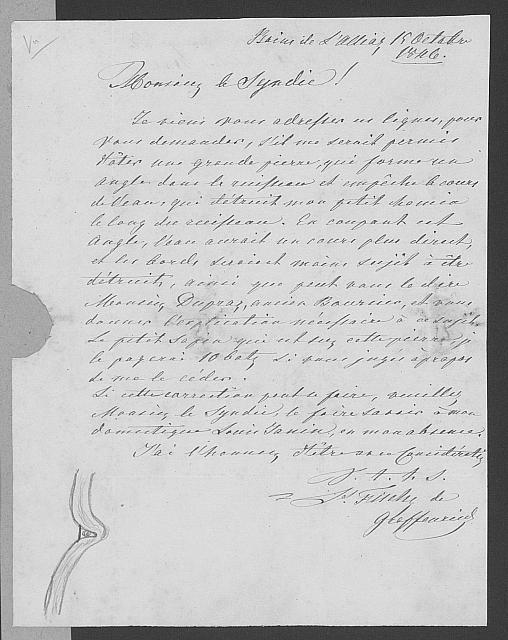 Bains de L'Alliaz 15 Octobre
1846.
Monsieur le Syndic!
Je viens vous adresser ces lignes, pour
vous demander, s'il me serait permis
d'ôter une grande pierre, qui forme un
angle dans le ruisseau et empêche le cours
de l'eau, qui détruit mon petit chemin
le long du ruisseau. En coupant cet
angle, l'eau aurait un cours plus direct,
et les bords seraient moins sujet à être
détruits, ainsi que peut vous le dire
Monsieur Dupraz, ancien Boursier, et vous
donner l'explication nécessaire à ce sujet.
Le petit Sapin qui est sur cette pierre, je
le payerai 10 batz si vous jugez àpropos
de me le céder.
Si cette correction peut se faire, veuillez
Monsieur le Syndic, le faire savoir à mon
domestique Louis Janin, en mon absence.
J'ai l'honneur d'être avec Considération
V. t. h. S.
de